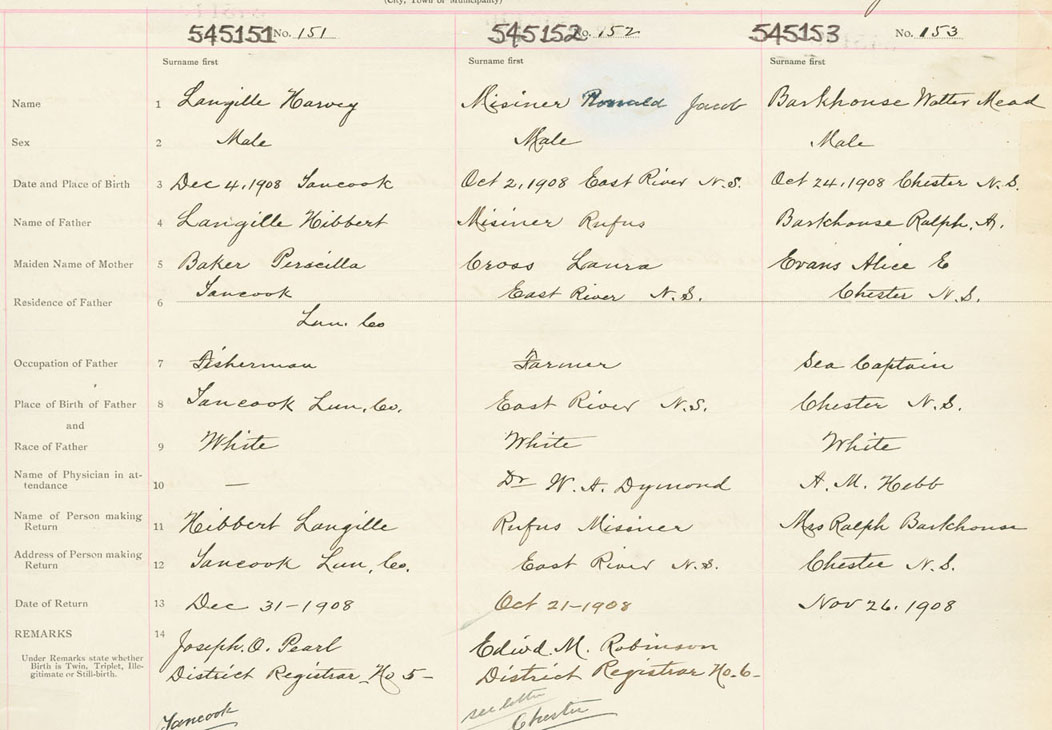 (City, Town or Municipality)
545151 No. 151 545152 No. 152 545153 No. 153
Surname first Surname first Surname first
Name 1 Langille Harvey Misiner Ronald Jacob Barkhouse Walter Mead
Sex 2 Male Male Male
Date and Place of Birth 3 Dec 4, 1908 Tancook Oct 2, 1908 East River N.S. Oct 24, 1908 Chester N.S.
Name of Father 4 Langille Hibbert Misiner Rufus Barkhouse Ralph. A.
Maiden Name of Mother 5 Baker Perscilla Cross Laura Evans Alice E
Residence of Father 6 Tancook East River N.S. Chester N.S.
Lun. Co
Occupation of Father 7 Fisherman Farmer Sea Captain
Place of Birth of Father 8 Tancook Lun, Co. East River N.S. Chester N.S.
and
Race of Father 9 White White White
Name of Physician in at-
tendance 10 — Dr W. A. Dymond A. M. Hebb
Name of Person making
Return 11 Hibbert Langille Rufus Misiner Mrs Ralph Barkhouse
Address of Person making
Return 12 Tancook Lun, Co. East River N.S. Chester N.S.
Date of Return 13 Dec 31-1908 Oct 21-1908 Nov 26. 1908
REMARKS 14 Joseph. O. Pearl Edwd. M. Robinson
Under Remarks state whether
Birth is Twin, Triplet, Ille-
gitimate or Still-birth.
District Registrar No 5- District Registrar No. 6-
Tancook see letter Chester